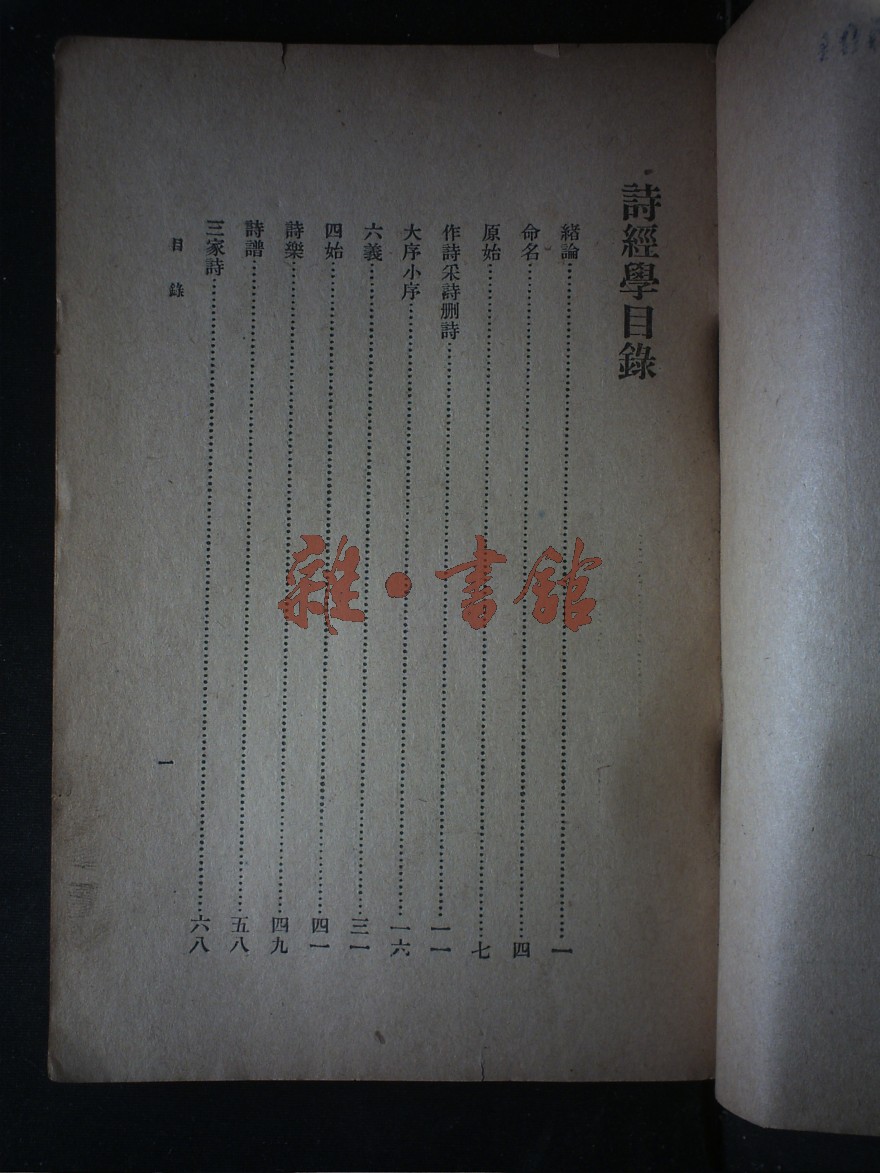 詩經學目錄
緒論……一
命名……四
原始……七
作詩采詩刪詩……一一
大序小序……一六
六義……三一
四始……四一
詩樂……四九
詩譜……五八
三家詩……六八
目錄
一
雜·書館